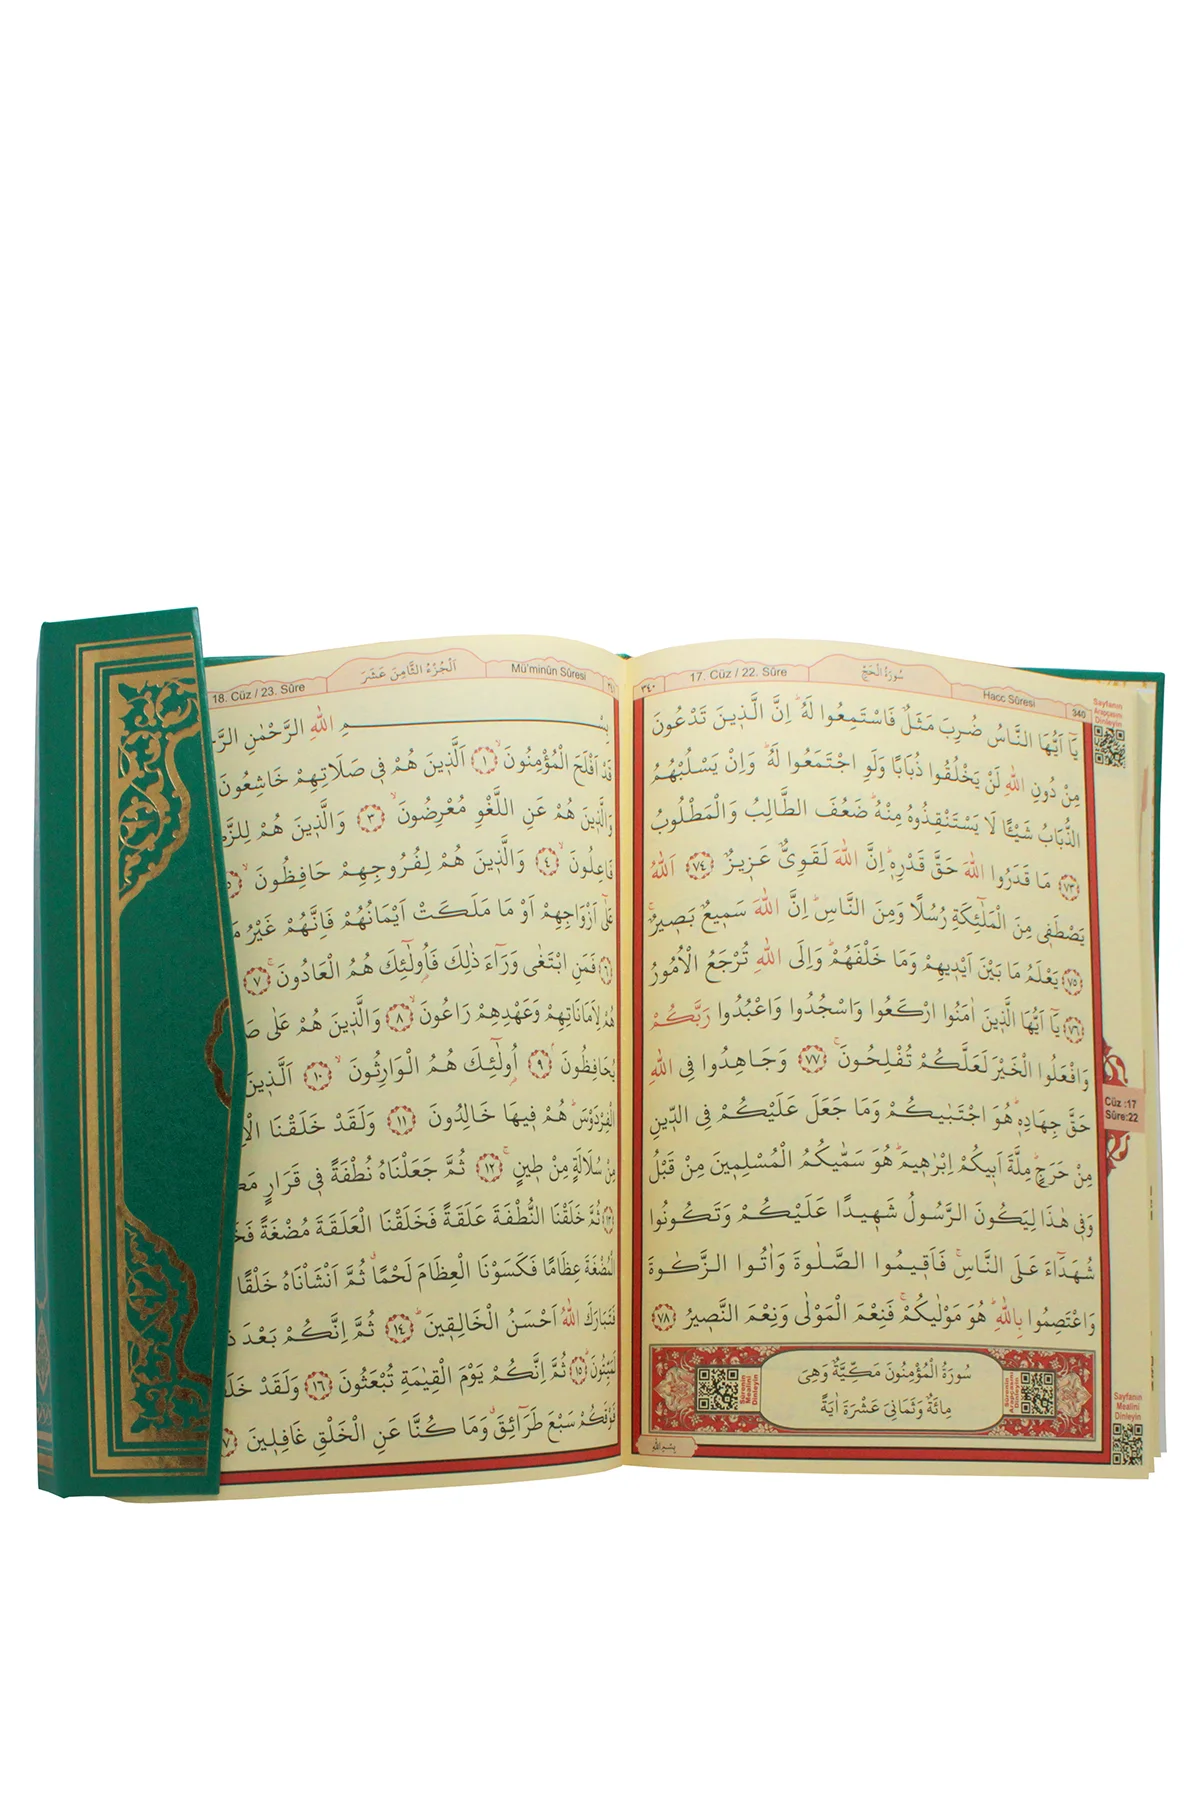 340
Hacc Sûresi
سُورَةُ الْحَجِّ
17. Cüz / 22. Sûre
٣٤٠
يَٓا اَيُّهَا النَّاسُ ضُرِبَ مَثَلٌ فَاسْتَمِعُوا لَهُۜ اِنَّ الَّذ۪ينَ تَدْعُونَ
مِنْ دُونِ اللّٰهِ لَنْ يَخْلُقُوا ذُبَابًا وَلَوِ اجْتَمَعُوا لَهُۜ وَاِنْ يَسْلُبْهُمُ
الذُّبَابُ شَيْـًٔا لَا يَسْتَنْقِذُوهُ مِنْهُۜ ضَعُفَ الطَّالِبُ وَالْمَطْلُوبُ
﴿٧٣﴾ مَا قَدَرُوا اللّٰهَ حَقَّ قَدْرِه۪ۜ اِنَّ اللّٰهَ لَقَوِيٌّ عَز۪يزٌ ﴿٧٤﴾ اَللّٰهُ
يَصْطَف۪ي مِنَ الْمَلٰٓئِكَةِ رُسُلًا وَمِنَ النَّاسِۜ اِنَّ اللّٰهَ سَم۪يعٌ بَص۪يرٌۚ
﴿٧٥﴾ يَعْلَمُ مَا بَيْنَ اَيْد۪يهِمْ وَمَا خَلْفَهُمْۜ وَاِلَى اللّٰهِ تُرْجَعُ الْاُمُورُ
﴿٧٦﴾ يَٓا اَيُّهَا الَّذ۪ينَ اٰمَنُوا ارْكَعُوا وَاسْجُدُوا وَاعْبُدُوا رَبَّكُمْ
وَافْعَلُوا الْخَيْرَ لَعَلَّكُمْ تُفْلِحُونَۚ ﴿٧٧﴾ وَجَاهِدُوا فِي اللّٰهِ
حَقَّ جِهَادِه۪ۜ هُوَ اجْتَبٰيكُمْ وَمَا جَعَلَ عَلَيْكُمْ فِي الدّ۪ينِ
مِنْ حَرَجٍۜ مِلَّةَ اَب۪يكُمْ اِبْرٰه۪يمَۜ هُوَ سَمّٰيكُمُ الْمُسْلِم۪ينَ مِنْ قَبْلُ
وَف۪ي هٰذَا لِيَكُونَ الرَّسُولُ شَه۪يدًا عَلَيْكُمْ وَتَكُونُوا
شُهَدَٓاءَ عَلَى النَّاسِۚ فَاَق۪يمُوا الصَّلٰوةَ وَاٰتُوا الزَّكٰوةَ
وَاعْتَصِمُوا بِاللّٰهِۜ هُوَ مَوْلٰيكُمْۚ فَنِعْمَ الْمَوْلٰى وَنِعْمَ النَّص۪يرُ ﴿٧٨﴾
سُورَةُ الْمُؤْمِنُونَ مَكِّيَّةٌ وَهِيَ
مِائَةٌ وَثَمَانِيَ عَشْرَةَ اٰيَةً
Sûrenin
Mealini
Dinleyin
Sûrenin
Arapçasını
Dinleyin
بِسْمِ اللّٰهِ
Sayfanın
Arapçasını
Dinleyin
Cüz :17
Sûre:22
Sayfanın
Mealini
Dinleyin
Mü'minûn Sûresi
اَلْجُزْءُ الثَّامِنَ عَشَرَ
18. Cüz / 23. Sûre
بِسْمِ اللّٰهِ الرَّحْمٰنِ
قَدْ اَفْلَحَ الْمُؤْمِنُونَۙ ﴿١﴾ اَلَّذ۪ينَ هُمْ ف۪ي صَلَاتِهِمْ خَاشِعُونَ
وَالَّذ۪ينَ هُمْ عَنِ اللَّغْوِ مُعْرِضُونَۙ ﴿٣﴾ وَالَّذ۪ينَ هُمْ
فَاعِلُونَۙ ﴿٤﴾ وَالَّذ۪ينَ هُمْ لِفُرُوجِهِمْ حَافِظُونَۙ
عَلٰٓى اَزْوَاجِهِمْ اَوْ مَا مَلَكَتْ اَيْمَانُهُمْ فَاِنَّهُمْ غَيْرُ
﴿٦﴾ فَمَنِ ابْتَغٰى وَرَٓاءَ ذٰلِكَ فَاُو۬لٰٓئِكَ هُمُ الْعَادُونَۚ ﴿٧﴾
هُمْ لِاَمَانَاتِهِمْ وَعَهْدِهِمْ رَاعُونَۙ ﴿٨﴾ وَالَّذ۪ينَ هُمْ عَلٰى
يُحَافِظُونَۢ ﴿٩﴾ اُو۬لٰٓئِكَ هُمُ الْوَارِثُونَۙ ﴿١٠﴾ اَلَّذ۪ينَ
الْفِرْدَوْسَۜ هُمْ ف۪يهَا خَالِدُونَ ﴿١١﴾ وَلَقَدْ خَلَقْنَا
مِنْ سُلَالَةٍ مِنْ ط۪ينٍۚ ﴿١٢﴾ ثُمَّ جَعَلْنَاهُ نُطْفَةً ف۪ي قَرَارٍ
﴿١٣﴾ ثُمَّ خَلَقْنَا النُّطْفَةَ عَلَقَةً فَخَلَقْنَا الْعَلَقَةَ مُضْغَةً
الْمُضْغَةَ عِظَامًا فَكَسَوْنَا الْعِظَامَ لَحْمًاۗ ثُمَّ اَنْشَأْنَاهُ خَلْقًا
فَتَبَارَكَ اللّٰهُ اَحْسَنُ الْخَالِق۪ينَۜ ﴿١٤﴾ ثُمَّ اِنَّكُمْ بَعْدَ
لَمَيِّتُونَۜ ﴿١٥﴾ ثُمَّ اِنَّكُمْ يَوْمَ الْقِيٰمَةِ تُبْعَثُونَ ﴿١٦﴾ وَلَقَدْ
فَوْقَكُمْ سَبْعَ طَرَٓائِقَۗ وَمَا كُنَّا عَنِ الْخَلْقِ غَافِل۪ينَ